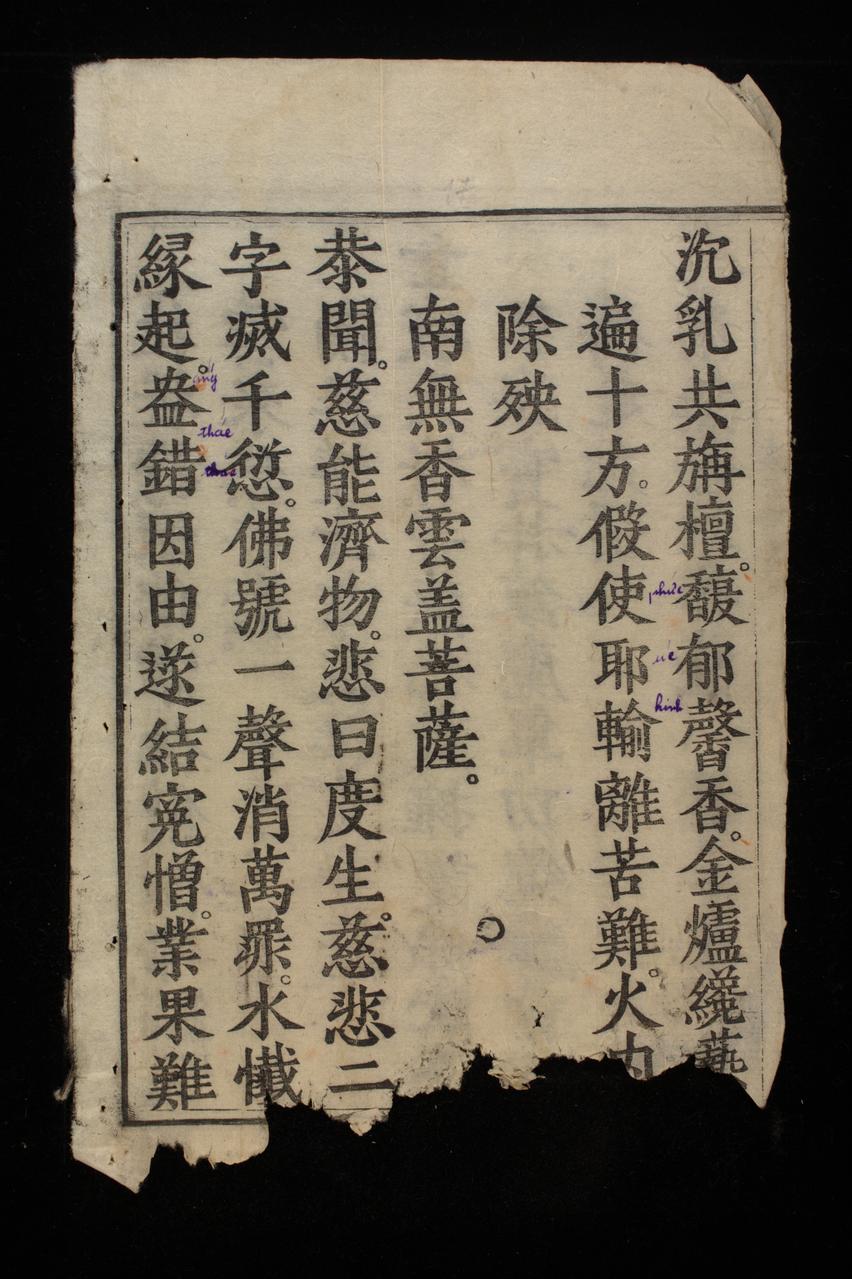 沉乳共旃檀。馥郁馨香。金爐纔爇
遍十方。假使耶輸離苦難。火内
除殃
南無香雲盖菩薩。
恭聞。慈能濟物。悲曰度生。慈悲二
字㓕千愆。佛號一聲消萬罪。水懴
緣起。盎錯因由。遂結寃憎。業果難
phức
uế
hinh
áng
thác
thác